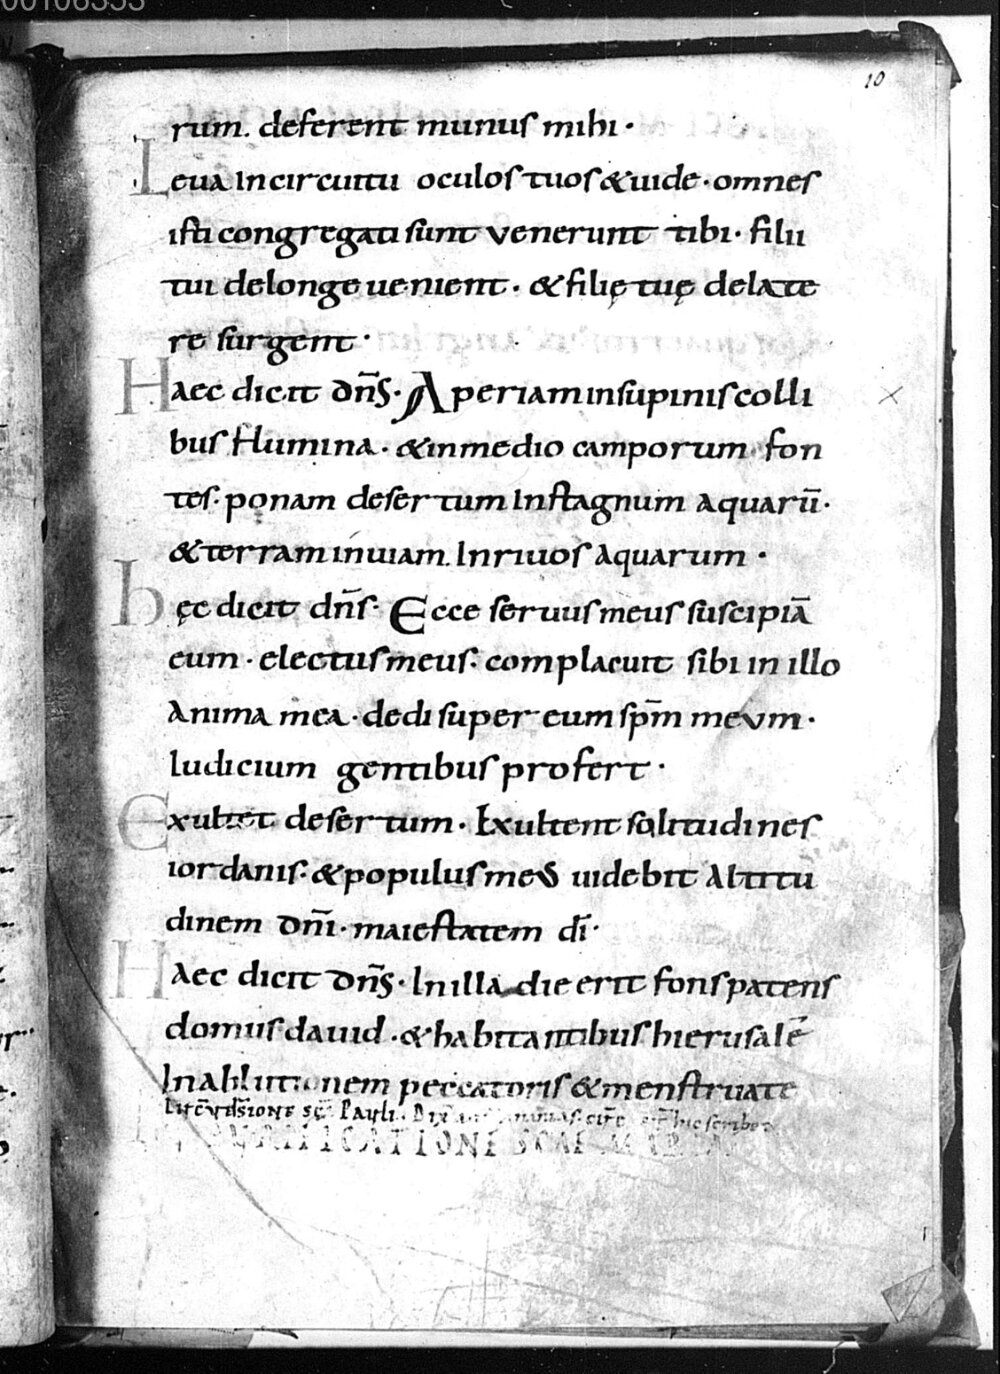 00106333
10
rum. deferent munus mihi·
Leua incircuitu oculos tuos & uide· omnes
isti congregati sunt venerunt tibi· filii
tui delonge uenient· & filię tuę delate
re surgent·
Haec dicit dn̄s· Aperiam insupinis colli
bus flumina· & inmedio camporum fon
tes· ponam desertum Instagnum aquarū·
& terram inuiam. Inriuos aquarum·
hęc dicit dn̄s· Ecce seruus meus suscipiā
eum· electus meus· complacuit sibi in illo
Anima mea· dedi super eum sp̄m mevm·
Iudicium gentibus profert·
Exultet desertum· Exultent solitudines
iordanis· & populus meus uidebit Altitu
dinem dn̄i· maiestatem dī·
Haec dicit dn̄s· In illa die erit fons patens
domus dauid· & habitantibus hierusalē
In ablutionem peccatoris & menstruate
sc̄i Pauli.
PURIFICATIONE SCAE MARIAE